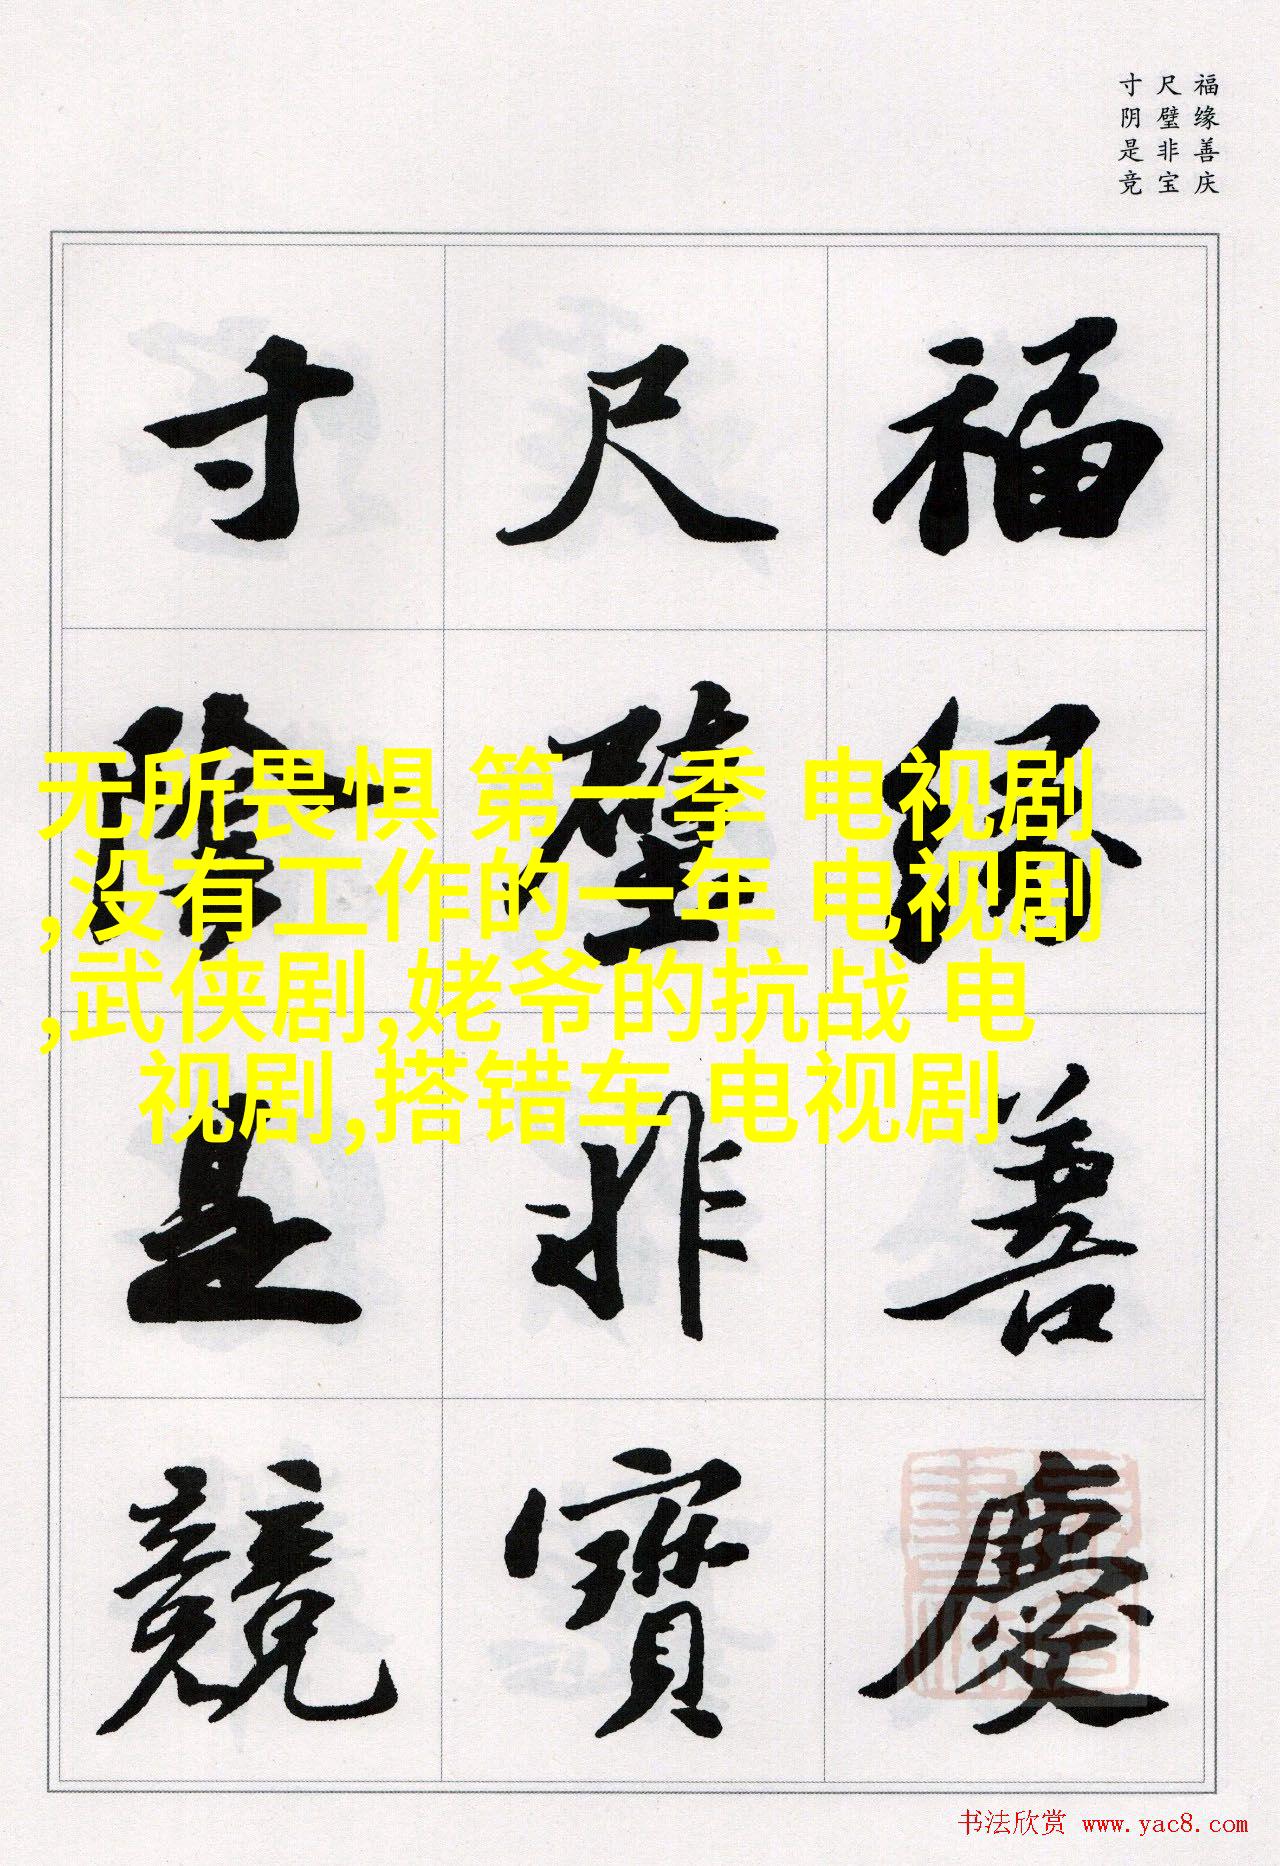 福缘善庆
尺璧非宝
寸阴是竞
福缘善慶
尺璧非寶
寸陰是競
无所畏惧 第一季 电视剧
,没有工作的一年 电视剧
,武侠剧,姥爷的抗战 电
视剧,搭错车 电视剧
书法欣赏 www.yac8.com